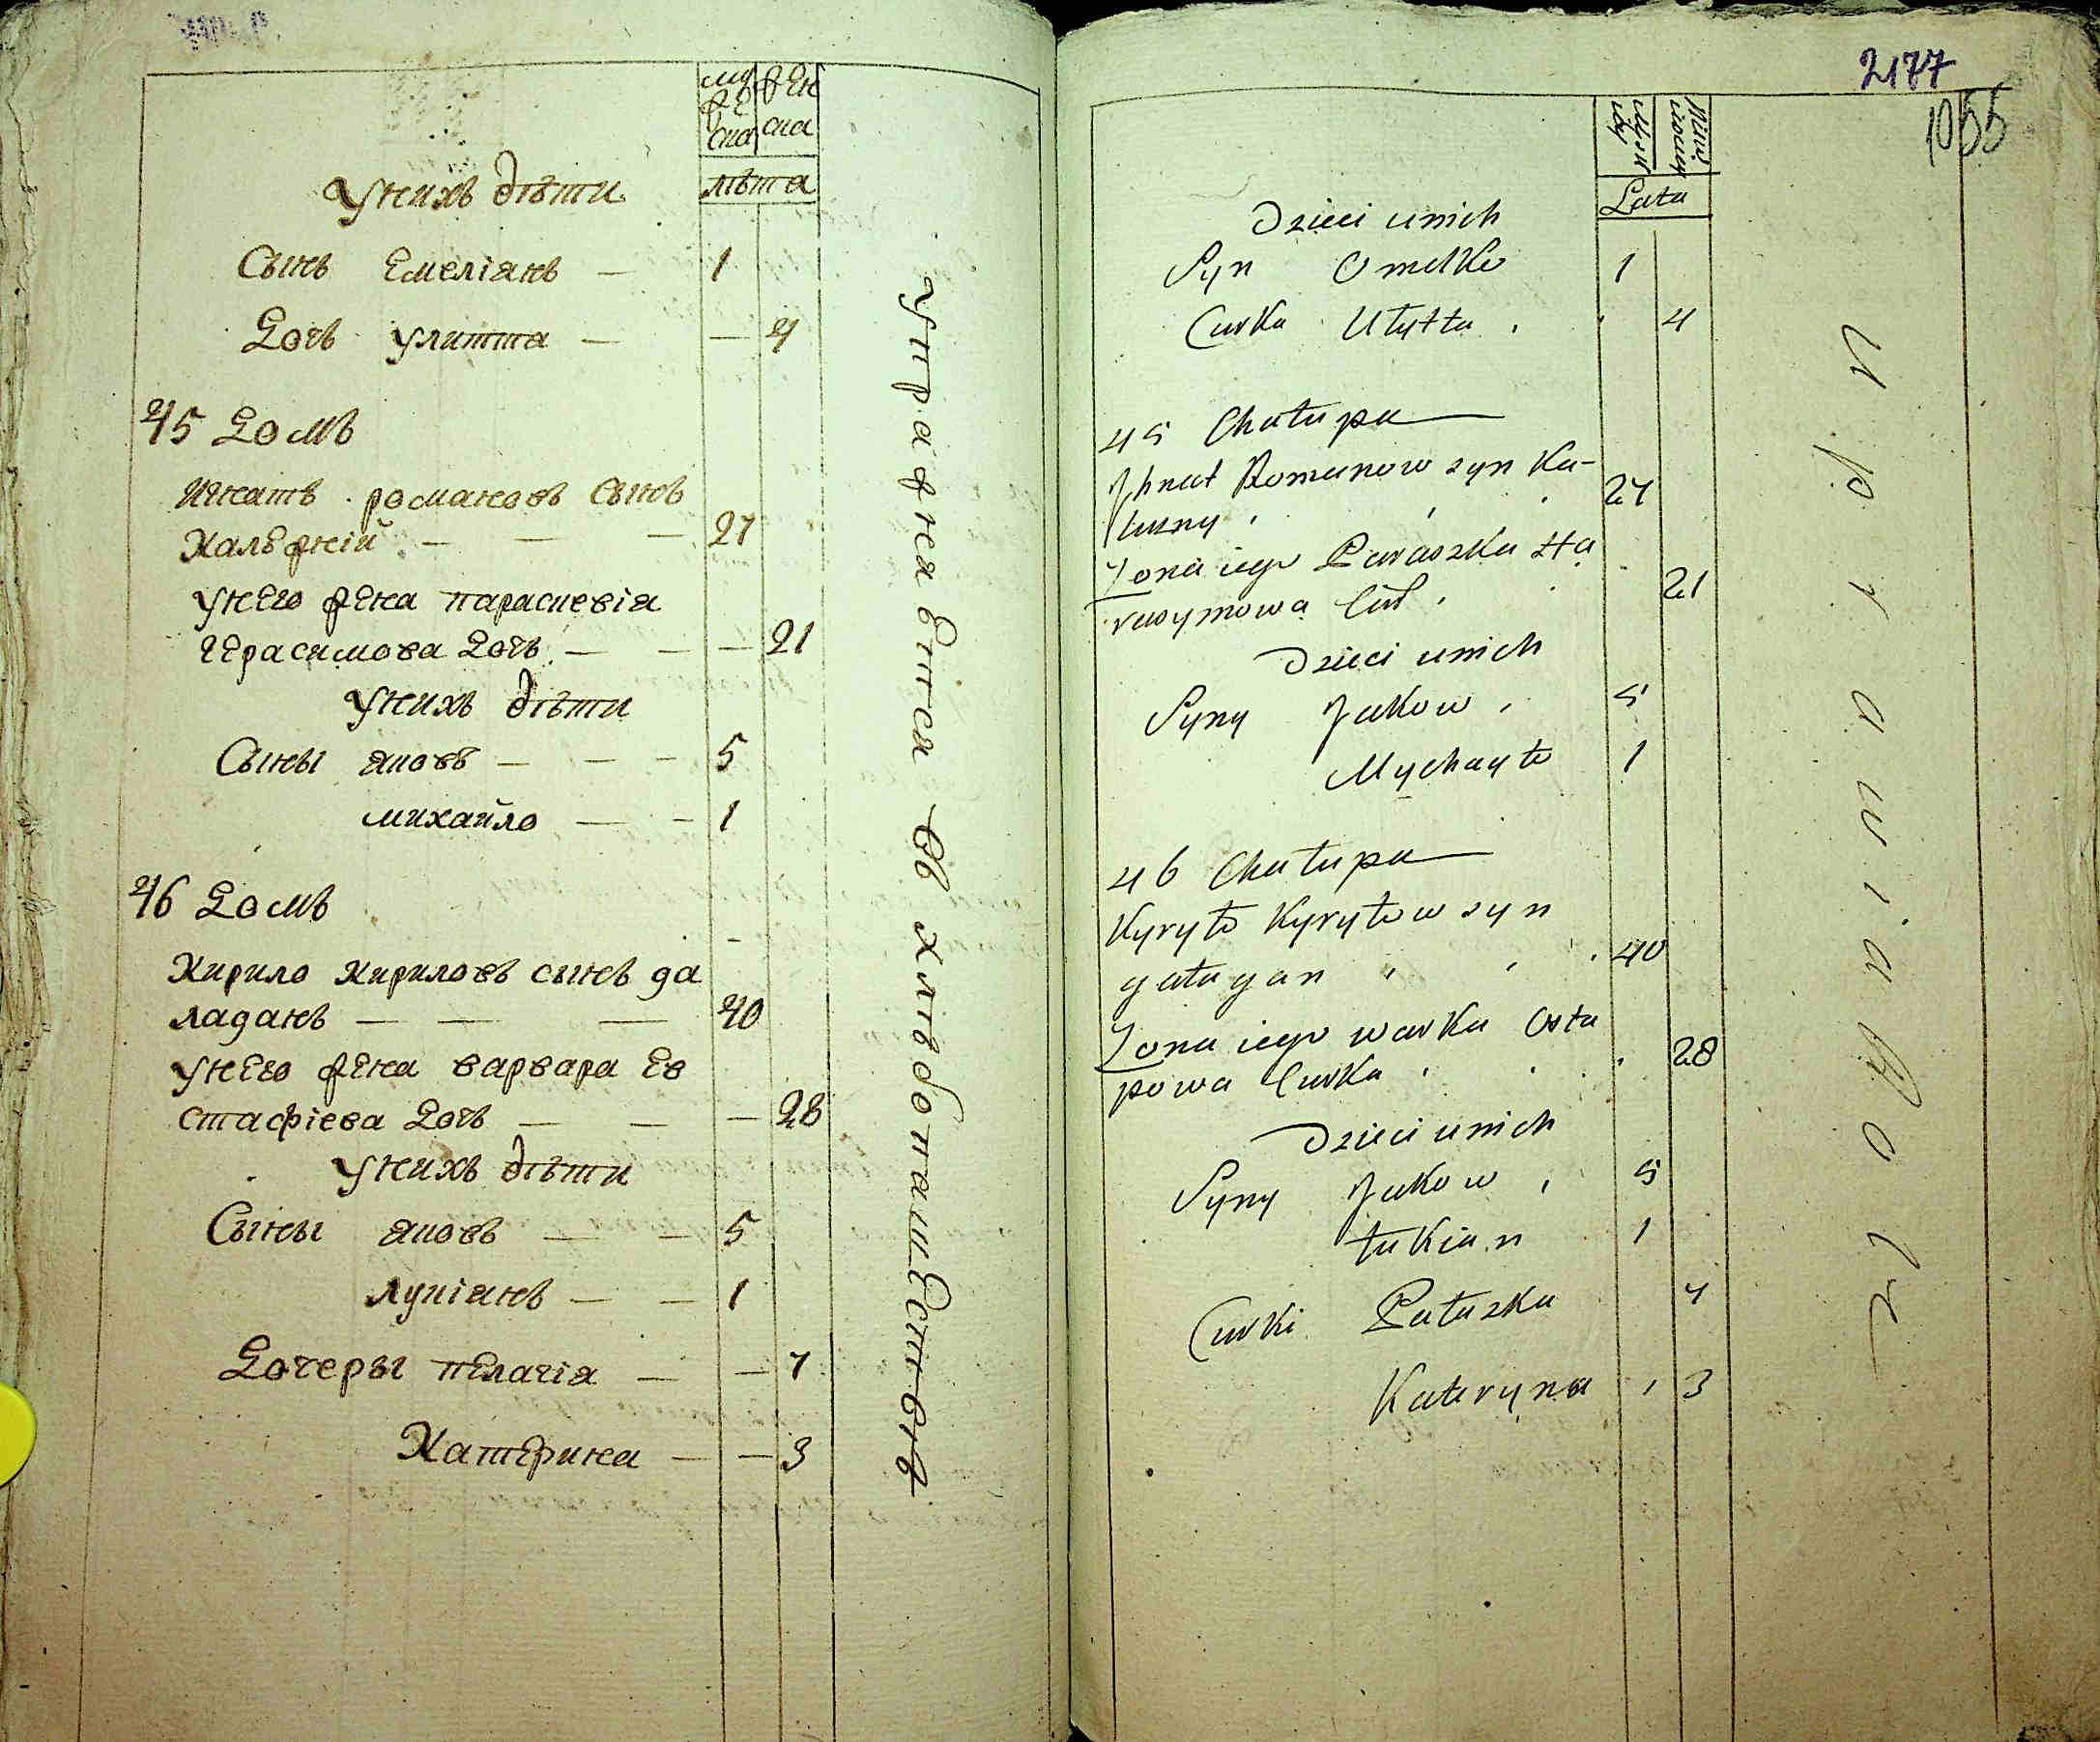 муже ска
жен ска
лѣта
У нихъ дѣти
Сынъ Емелiянъ — 1
Дочь улитта — — 4
45 Домъ
Игнатъ романовъ сынъ
Кальжнiй — — — 27
у него жена параскевiя
герасимова дочь — — — 21
У нихъ дѣти
Сыны яковъ — — — 5
михайло — — 1
46 Домъ
Кирило кириловъ сынъ га
лаганъ — — — 40
у него жена варвара Ев
стафiева дочь — — — 28
У нихъ дѣти
Сыны яковъ — — 5
лукiянъ — — 1
Дочеры пелагiя — — 7
Катерина — — 3
упражняется въ хлѣбопашествѣ
2177
1055
Lata
Dzieci u nich
Syn Omelko 1
Curka Ulytta . 4
45 Chałupa
Jhnat Romanow syn Ka-
łuzny . 27
Zona iego Paraszka Ha
rasymowa Cur . 21
Dzieci u nich
Syny Jakow . 5
Mychayło 1
46 Chałupa
Kyryło Kyryłow syn
gałagan . 40
Zona iego warka Osta
powa Curka . 28
Dzieci u nich
Syny Jakow . 5
łukian 1
Curki Pałazka 7
Kateryna . 3